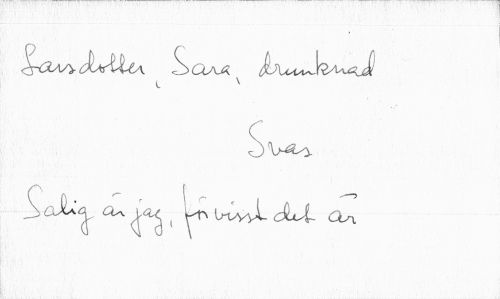 Larsdotter, Sara, drunknad
Svas
Salig är jag, förvisst det är